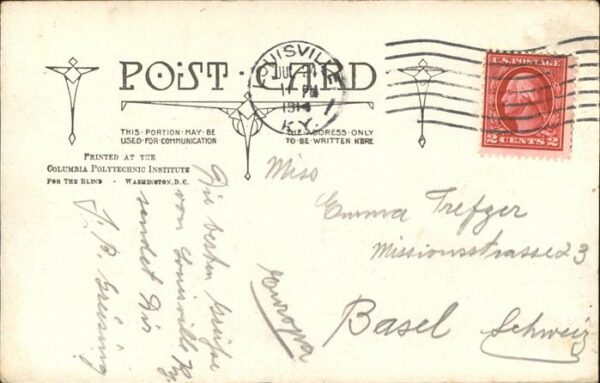 POST CARD
LOUISVILLE
11 PM
1914
KY.
U.S. POSTAGE
2 CENTS 2
THIS PORTION MAY BE
USED FOR COMMUNICATION
THE ADDRESS ONLY
TO BE WRITTEN HERE
PRINTED AT THE
COLUMBIA POLYTECHNIC INSTITUTE
FOR THE BLIND - WASHINGTON, D.C.
Die besten Grüße
von Louisville Ky.
sendet Dir
Miss
Emma Trefzer
Missionsstrasse 23
Basel Schweiz
Europa